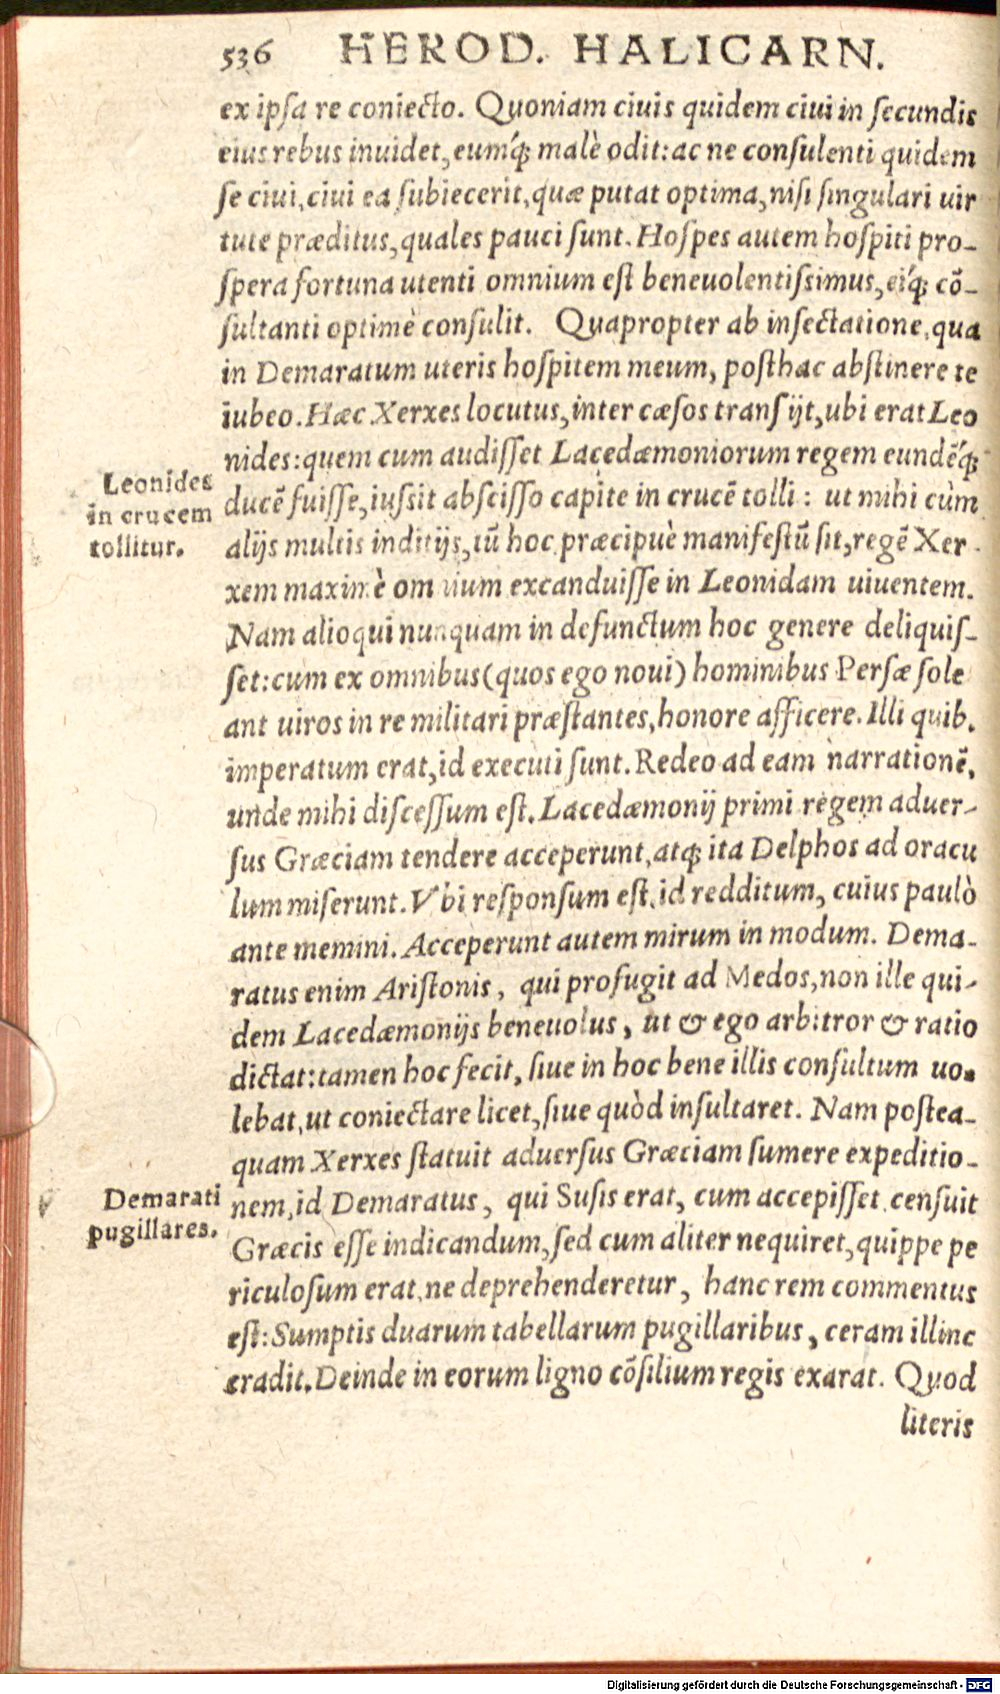 536 HEROD. HALICARN.
ex ipſa re coniecto. Quoniam ciuis quidem ciui in ſecundis
eius rebus inuidet, eumq́; malè odit: ac ne conſulenti quidem
ſe ciui, ciui ea ſubiecerit, quæ putat optima, niſi ſingulari uir
tute præditus, quales pauci ſunt. Hoſpes autem hoſpiti pro-
ſpera fortuna utenti omnium eſt beneuolentiſsimus, eiq́; cō-
ſultanti optimè conſulit. Quapropter ab inſectatione, qua
in Demaratum uteris hoſpitem meum, poſthac abſtinere te
iubeo. Hæc Xerxes locutus, inter cæſos tranſijt, ubi erat Leo
nides: quem cum audiſſet Lacedæmoniorum regem eundēq́;
Leonides
in crucem
tollitur.
ducē fuiſſe, iuſsit abſciſſo capite in crucē tolli: ut mihi cùm
alijs multis inditijs, tū hoc præcipuè manifeſtū ſit, regē Xer-
xem maximè omnium excanduiſſe in Leonidam uiuentem.
Nam alioqui nunquam in defunctum hoc genere deliquiſ-
ſet: cum ex omnibus (quos ego noui) hominibus Perſæ ſole
ant uiros in re militari præſtantes, honore afficere. Illi quib.
imperatum erat, id executi ſunt. Redeo ad eam narrationē,
unde mihi diſceſſum eſt. Lacedæmonij primi regem aduer-
ſus Græciam tendere acceperunt, atq; ita Delphos ad oracu
lum miſerunt. Vbi reſponſum eſt id redditum, cuius paulò
ante memini. Acceperunt autem mirum in modum. Dema-
ratus enim Ariſtonis, qui profugit ad Medos, non ille qui-
dem Lacedæmonijs beneuolus, ut & ego arbitror & ratio
dictat: tamen hoc fecit, ſiue in hoc bene illis conſultum uo-
lebat, ut coniectare licet, ſiue quòd inſultaret. Nam poſtea-
quam Xerxes ſtatuit aduerſus Græciam ſumere expeditio-
Demarati
pugillares.
nem, id Demaratus, qui Suſis erat, cum accepiſſet, cenſuit
Græcis eſſe indicandum, ſed cum aliter nequiret, quippe pe
riculoſum erat, ne deprehenderetur, hanc rem commentus
eſt: Sumptis duarum tabellarum pugillaribus, ceram illinc
eradit. Deinde in eorum ligno cōſilium regis exarat. Quod
literis
Digitalisierung gefördert durch die Deutsche Forschungsgemeinschaft - DFG